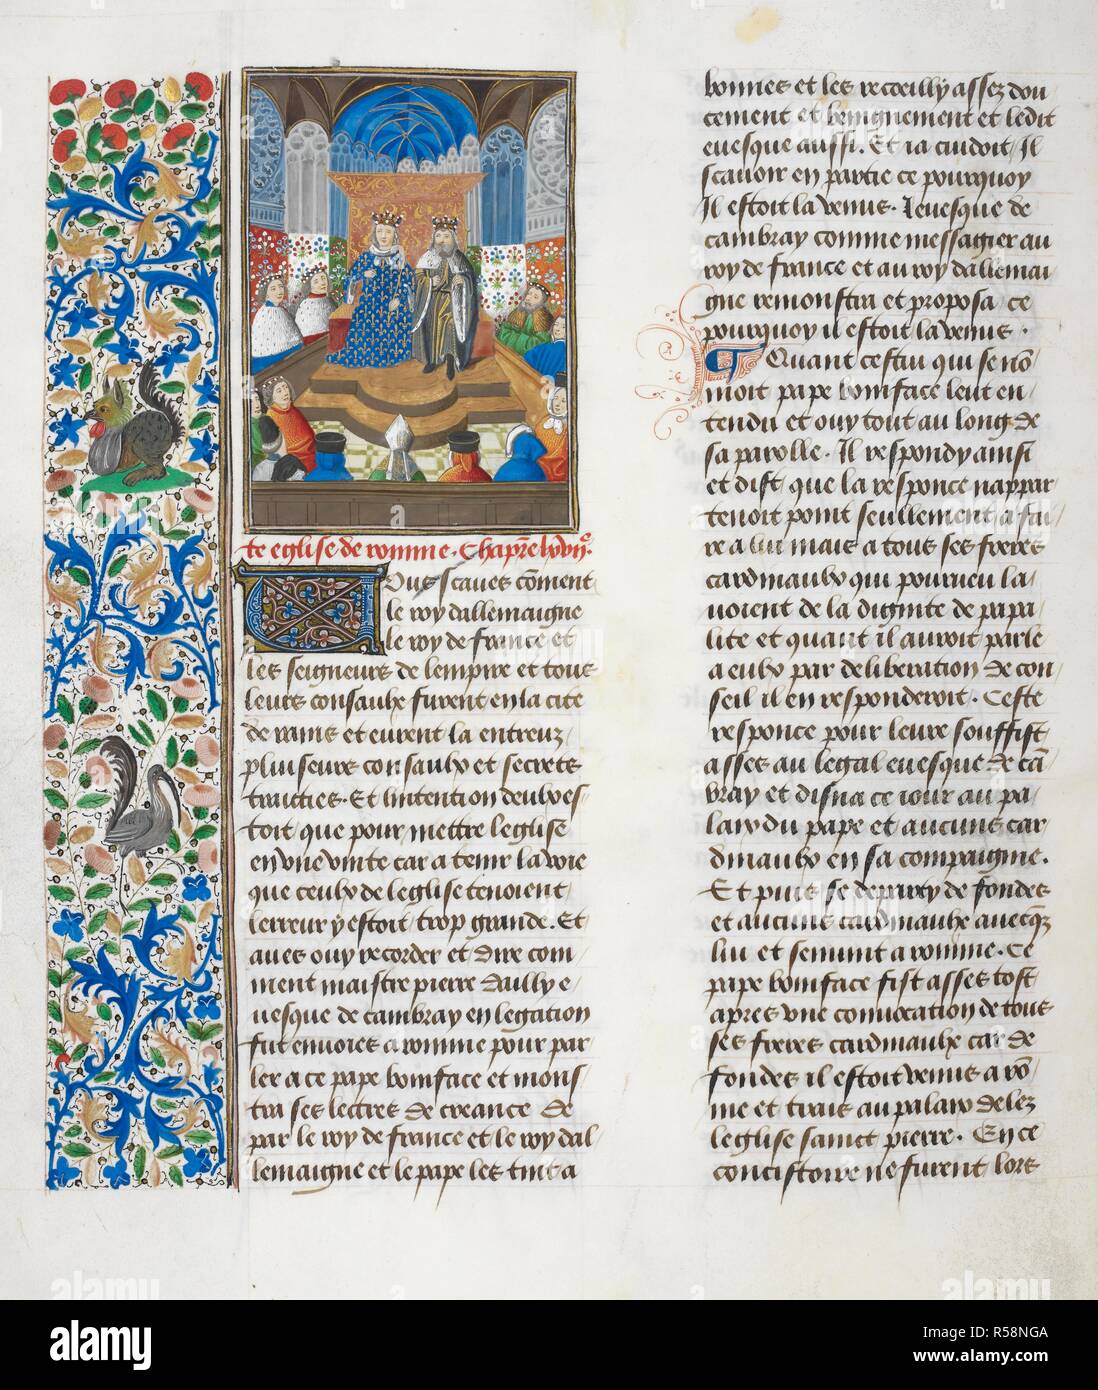 te eglise de romme. Chap̃re lxviiᵒ.
Vous scaves cõment
le roy dallemaigne
le roy de france et
les seigneurs de lempire et tous
leurs consaulx furent en la cite
de rains et eurent la entreuz
pluiseurs consaulx et secrets
traicties. Et lintention deulx es
toit que pour mettre leglise
en vne vnite car a tenir la voie
que ceulx de leglise tenoient
lerreur y estoit trop grande. Et
aues ouy recorder et dire com
ment maistre pierre dailly e
uesque de cambray en legation
fut enuoies a romme pour par
ler a ce pape boniface et mons
tra ses lectres de creance de
par le roy de france et le roy dal
lemaigne et le pape les tint a
bonnes et les recoeilly assez dou
cement et benignement et ledit
euesque aussi. Et ia cuidoit Il
scauoir en partie ce pourquoy
Il estoit la venus. Leuesque de
cambray comme messagier au
roy de france et au roy dallemai
gne remonstra et proposa ce
pourquoy il estoit la venus.
Quant cestui qui se nõ
moit pape boniface leut en
tendu et ouy tout au long de
sa parolle. Il respondy ainsi
et dist que la responce nappar
tenoit point seullement a fai
re a lui mais a tous ses freres
cardinaulx qui pourueu la
uoient de la dignite de papa
lite et quant il auroit parle
a eulx par deliberation de con
seil il en responderoit. Ceste
responce pour leure souffist
asses au legal euesque de cã
bray et disna ce iour au pa
laix du pape et aucuns car
dinaulx en sa compaignie.
Et puis se departy de fondes
et aucuns cardinaulx auecq̃s
lui et sen vint a romme. Ce
pape boniface fist asses tost
apres vne conuocation de tous
ses freres cardinaulx car de
fondes il estoit venus a rõ
me et trais au palaix delez
leglise sainct pierre. En ce
concistoire ne furent lors
alamy
Image ID: R58NGA
www.alamy.com